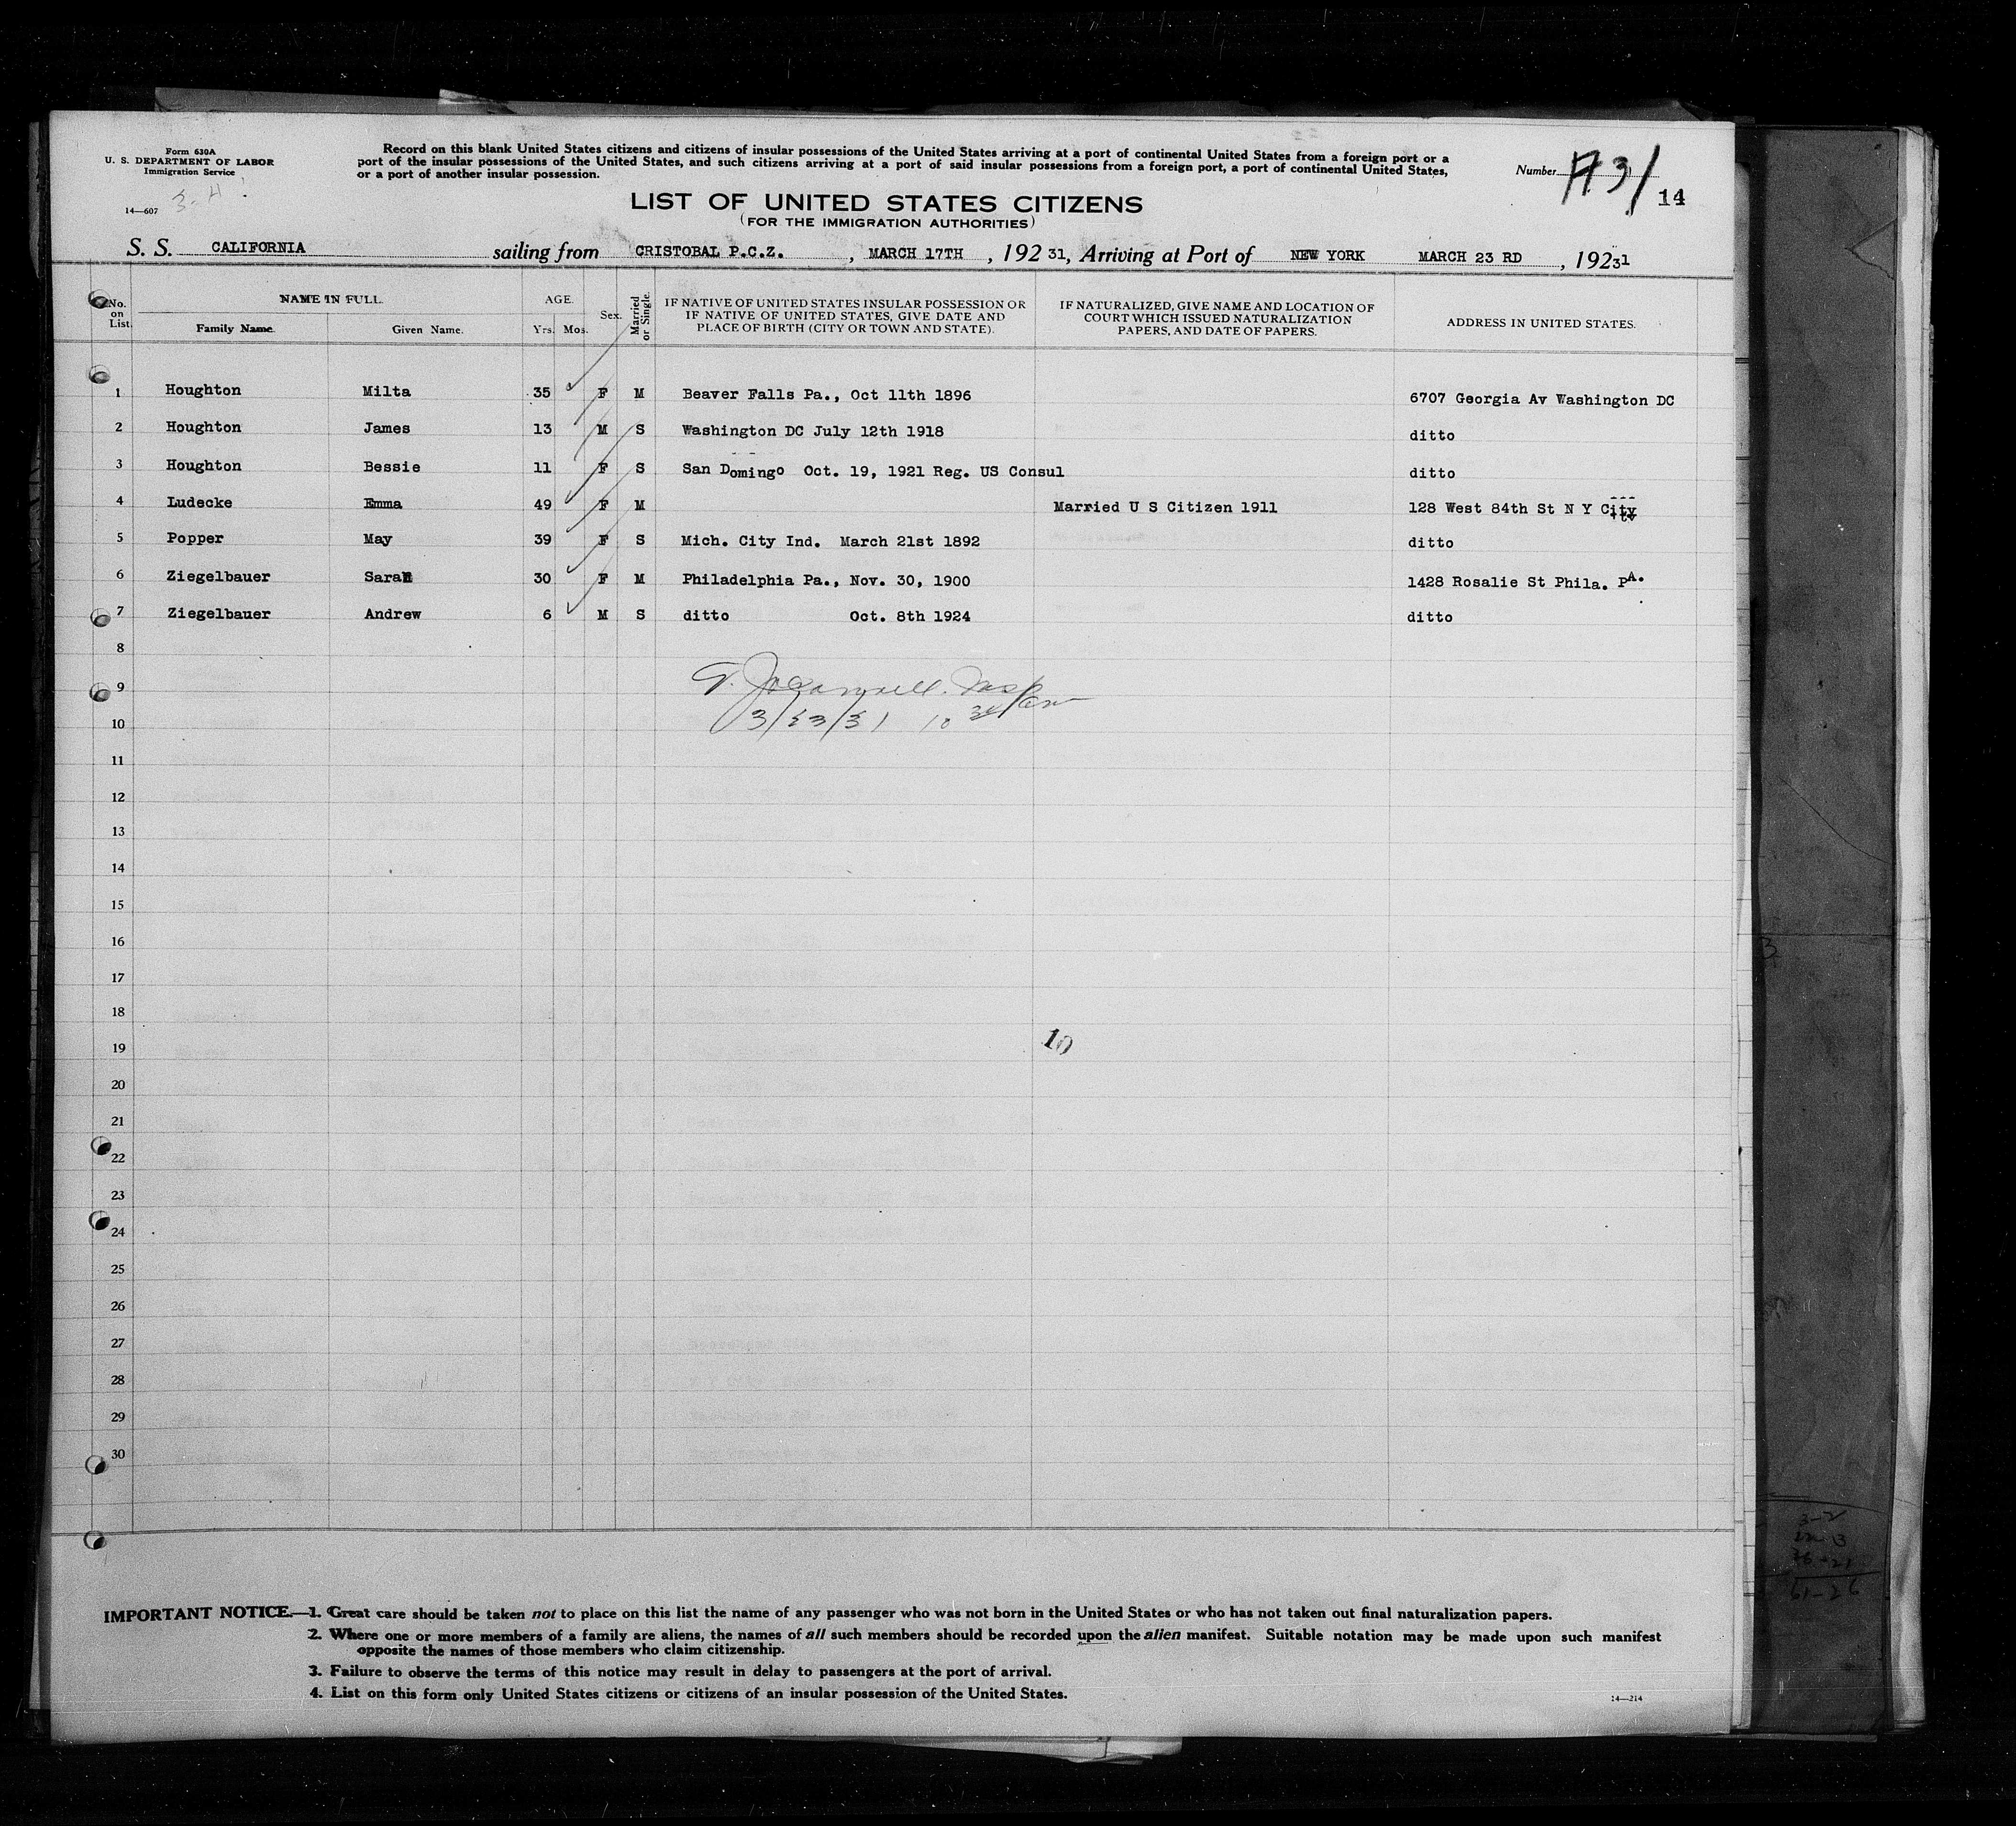 Form 630A
U. S. DEPARTMENT OF LABOR
Immigration Service
14—607
Record on this blank United States citizens and citizens of insular possessions of the United States arriving at a port of continental United States from a foreign port or a
port of the insular possessions of the United States, and such citizens arriving at a port of said insular possessions from a foreign port, a port of continental United States,
or a port of another insular possession.
Number A31
14
LIST OF UNITED STATES CITIZENS
(FOR THE IMMIGRATION AUTHORITIES)
S. S. CALIFORNIA sailing from CRISTOBAL P.C.Z. , MARCH 17TH , 192 31, Arriving at Port of NEW YORK MARCH 23 RD , 19231
No. on List. NAME IN FULL. Family Name. Given Name. AGE. Yrs. Mos. Sex. Married or Single. IF NATIVE OF UNITED STATES INSULAR POSSESSION OR IF NATIVE OF UNITED STATES, GIVE DATE AND PLACE OF BIRTH (CITY OR TOWN AND STATE). IF NATURALIZED, GIVE NAME AND LOCATION OF COURT WHICH ISSUED NATURALIZATION PAPERS, AND DATE OF PAPERS. ADDRESS IN UNITED STATES.
1 Houghton Milta 35 F M Beaver Falls Pa., Oct 11th 1896 6707 Georgia Av Washington DC
2 Houghton James 13 M S Washington DC July 12th 1918 ditto
3 Houghton Bessie 11 F S San Domingo Oct. 19, 1921 Reg. US Consul ditto
4 Ludecke Emma 49 F M Married U S Citizen 1911 128 West 84th St N Y City
5 Popper May 39 F S Mich. City Ind. March 21st 1892 ditto
6 Ziegelbauer Sarah 30 F M Philadelphia Pa., Nov. 30, 1900 1428 Rosalie St Phila. PA.
7 Ziegelbauer Andrew 6 M S ditto Oct. 8th 1924 ditto
8
9
3/23/31 10
10
11
12
13
14
15
16
17
18
19 10
20
21
22
23
24
25
26
27
28
29
30
IMPORTANT NOTICE.—1. Great care should be taken not to place on this list the name of any passenger who was not born in the United States or who has not taken out final naturalization papers.
2. Where one or more members of a family are aliens, the names of all such members should be recorded upon the alien manifest. Suitable notation may be made upon such manifest
opposite the names of those members who claim citizenship.
3. Failure to observe the terms of this notice may result in delay to passengers at the port of arrival.
4. List on this form only United States citizens or citizens of an insular possession of the United States.
14—214